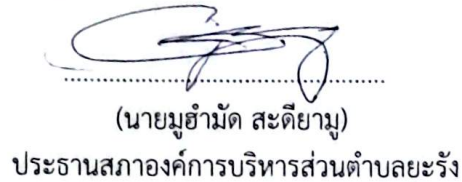 (นายมูฮำมัด สะดียามู)
ประธานสภาองค์การบริหารส่วนตำบลยะรัง